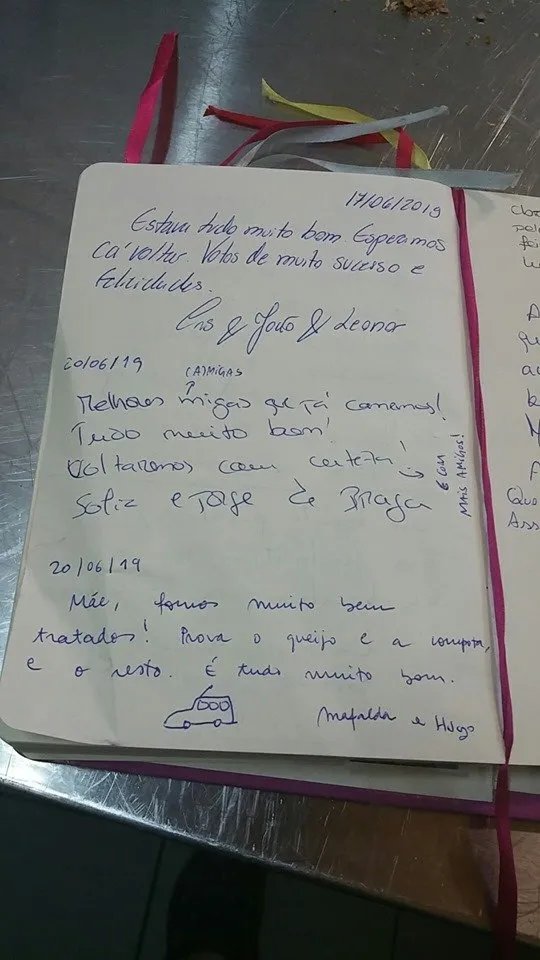 17/06/2019
Estava tudo muito bom. Esperamos
cá voltar. Votos de muito sucesso e
felicidades.
& João & Leonor
20/06/19
(A)MIGAS
Melhores migas que já comemos!
Tudo muito bom!
Voltaremos com certeza!
E COM
MAIS AMIGOS!
Sofia e Jorge de Braga
20/06/19
Mãe, fomos muito bem
tratados! Prova o queijo e a compota,
e o resto. É tudo muito bom.
Mafalda e Hugo